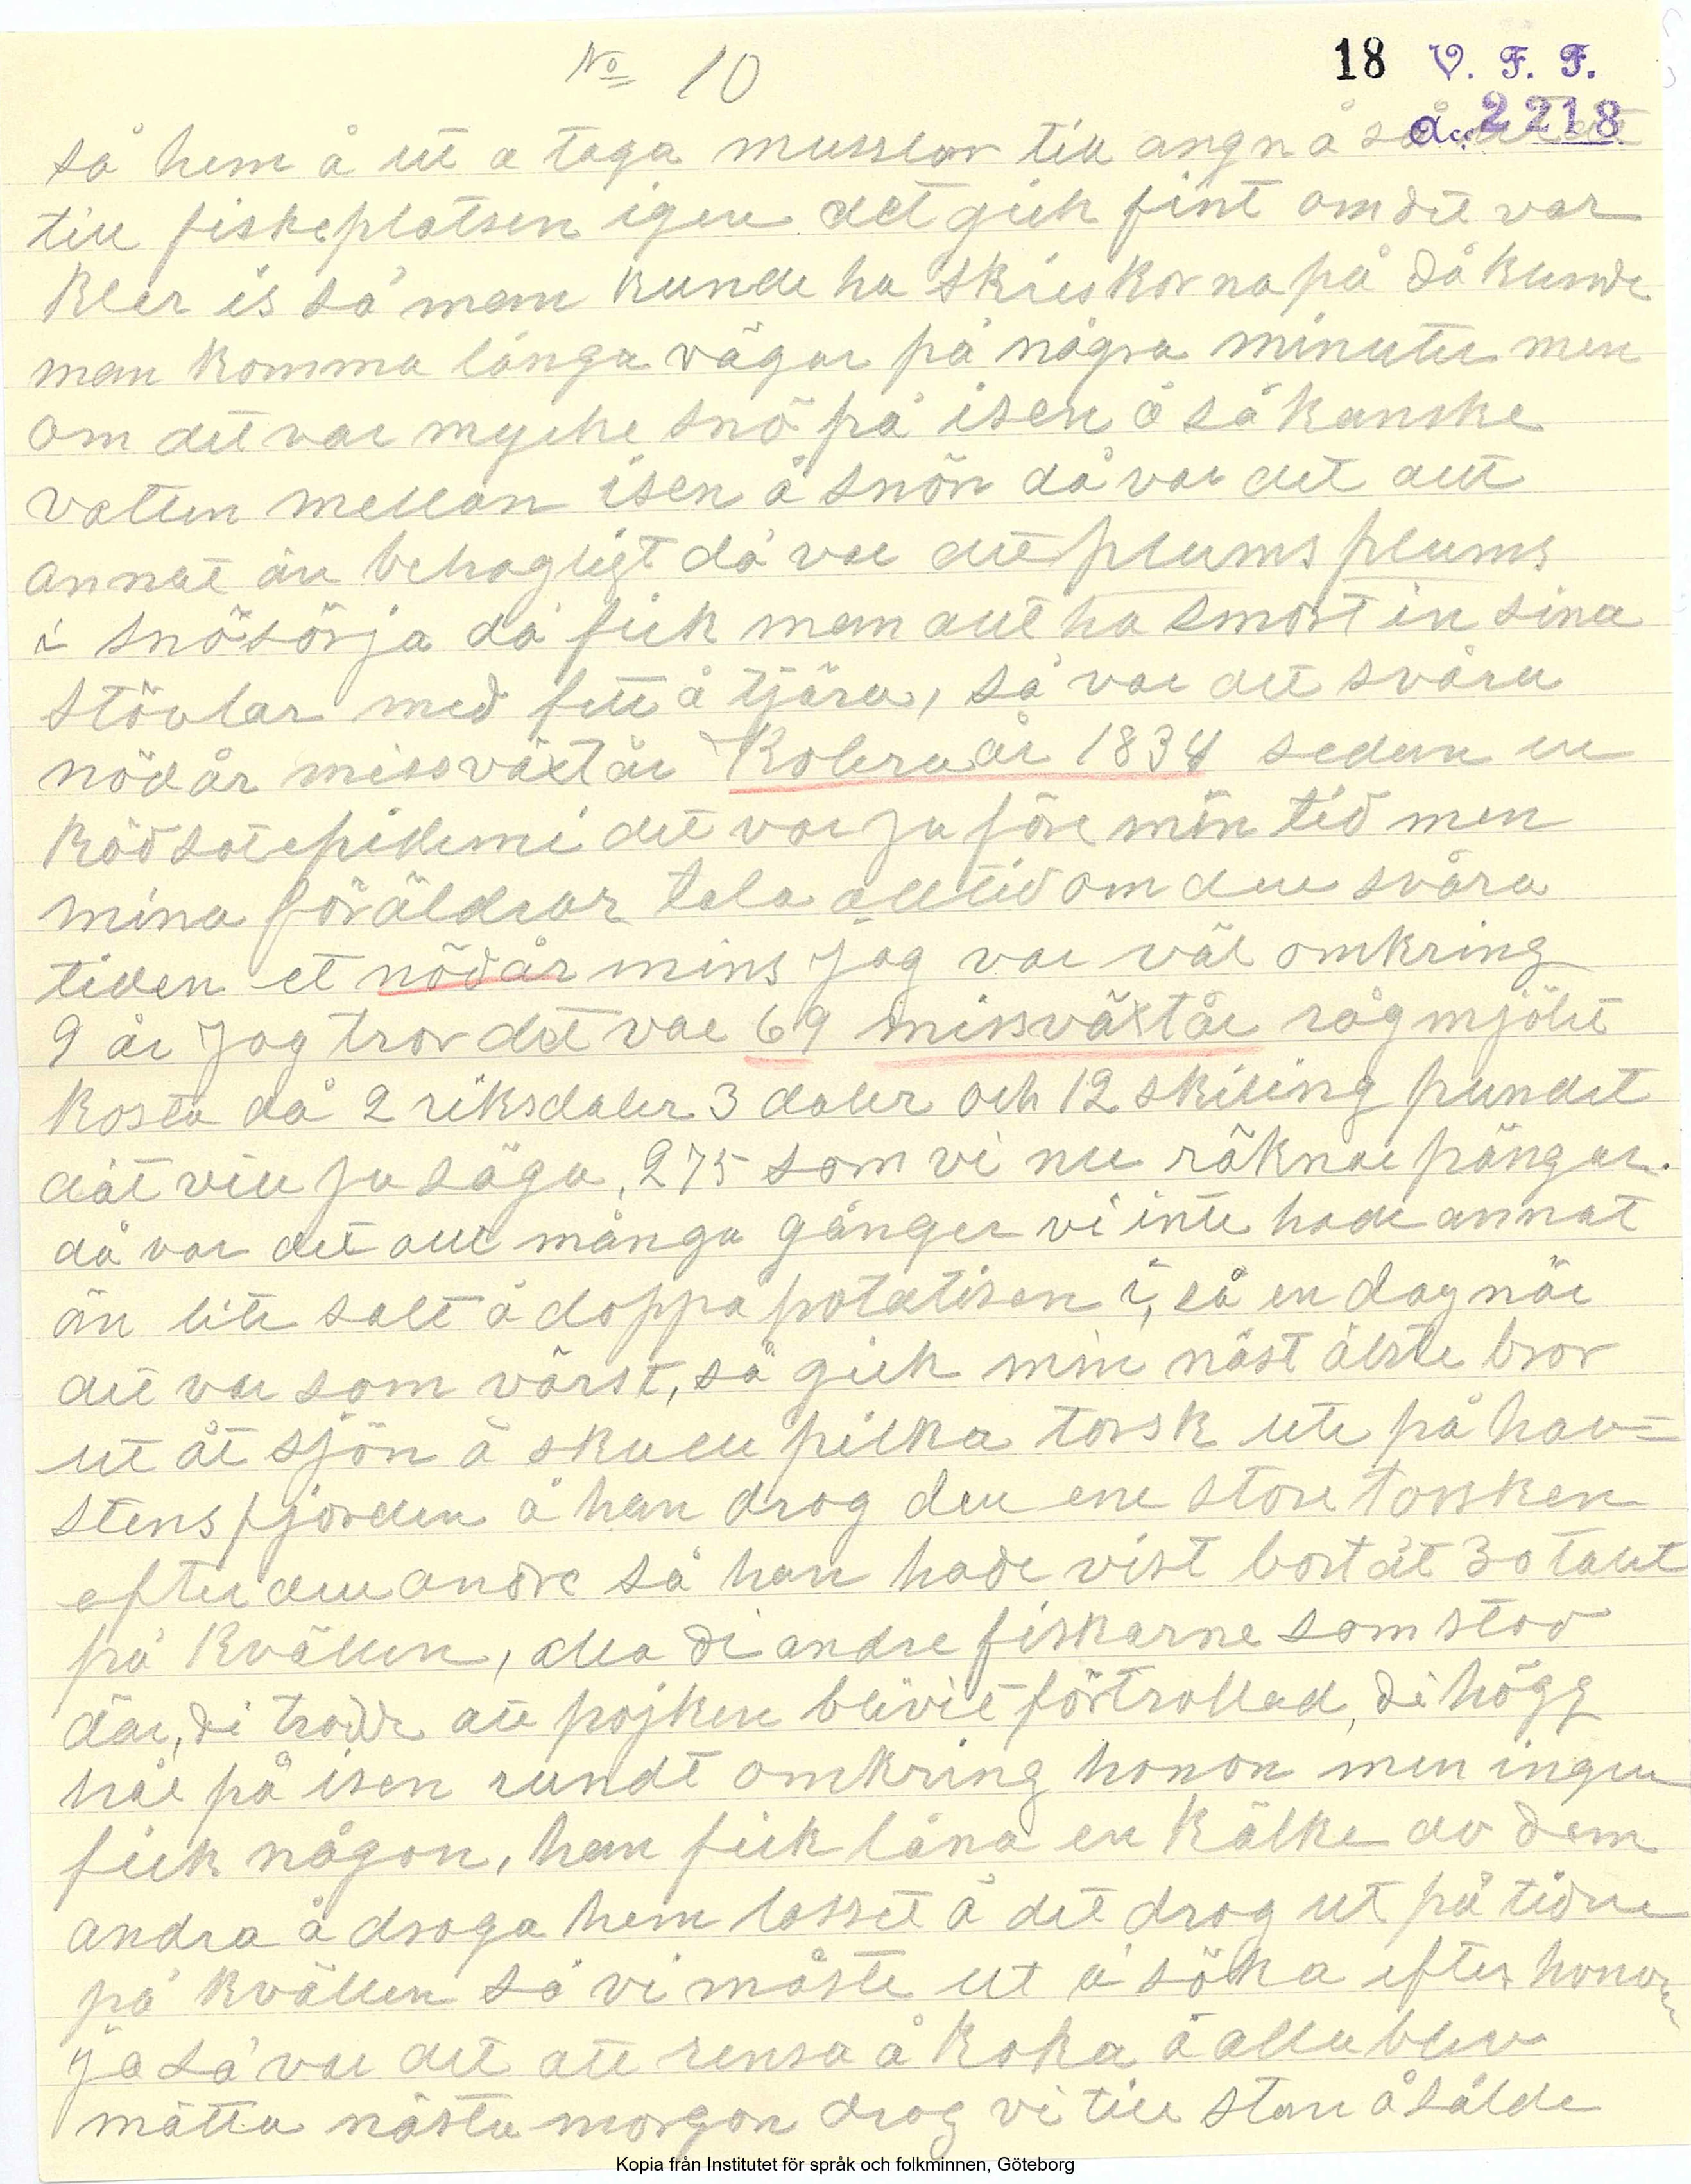 No 10
18 V. F. F.
2218
så hem å ut a taga musslor till angn å så
till fiskeplatsen igen det gick fint om det var
klar is så man kunde ha skriskorna på då kunde
man komma långa vägar på några minuter men
om det var mycke snö på isen å så kanske
vatten mellan isen å snön då var det allt
annat än behagligt då var det plums plums
i snösörja då fick man allt ha smort in sina
stövlar med fett å tjära, så var det svåra
nödår missväxtår Kolera år 1834 sedan en
rödsotepidemi det var ju före min tid men
mina föräldrar tala alltid om den svåra
tiden et nödår mins jag var väl omkring
9 år Jag tror det var 69 missväxtår rågmjölet
kosta då 2 riksdaler 3 daler och 12 skiling pundet
dät vill ju säga, 275 som vi nu räknar pängar.
då var det allt många gånger vi inte hade annat
än lite salt å doppa potatisen i, så en dag när
det var som värst, så gick min näst älste bror
ut åt sjön å skulle pilka torsk ute på hav=
stensfjorden å han drog den ene store torsken
efter den andre så han hade vist bortåt 30 talet
på kvällen, alla di andre fiskarne som stod
där, di trodde att pojken blivit förtrollad, di högg
hål på isen rundt omkring honon men ingen
fick någon, han fick låna en kälke av dem
andra å droga hem lasset å det drog ut på tiden
på kvällen så vi måste ut å söka efter honom
ja så var det att rensa å koka å alla blev
mätta nästa morgon drog vi till stan å sålde
Kopia från Institutet för språk och folkminnen, Göteborg